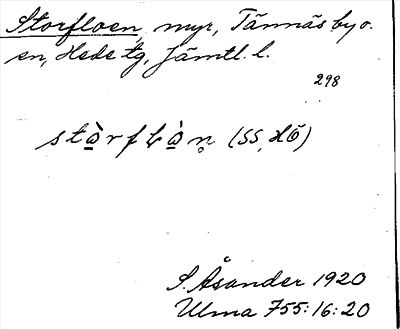 Storfloen, myr, Tännäs by o.
sn, Hede tg, Jämtl. l.
298
stɑ̀rflɑ̀n̥ (SS, HÖ)
S. Åsander 1920
Ulma 755:16:20